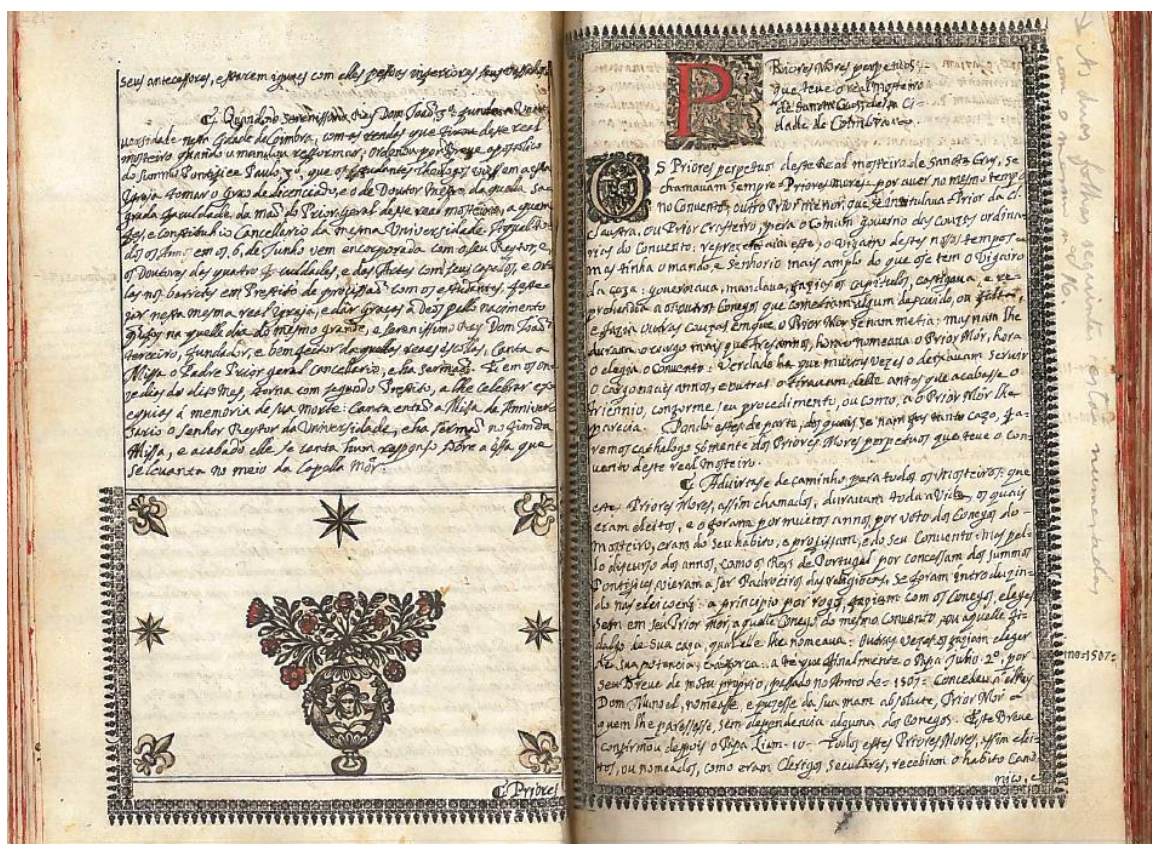 seus antecessores, estarem iguaes com elles pessoas inferiores
Quando o Serenissimo Rey Dom Joaõ 3º fundou a Uni-
versidade nesta Cidade de Coimbra, com as rendas que tirou deste real
mosteiro quando o mandou reformar; ordenou por Breve apostolico
do Summo Pontifice Paulo 3º, que os estudantes Theologos viessem a esta
Igreja tomar o grao de licenciado, e o de Doutor Mestre da quella Sa-
grada faculdade da maõ do Prior geral deste real mosteiro, a quem
fes e constituhio Cancellario da mesma Universidade
dos os Annos em os 6 de Junho vem encorporada com o seu Reytor, e
os Doutores das quatro faculdades, e das Artes com seus capellos, e
las nos barretes em Prestito de procissaõ com os estudantes, feste-
jar nesta mesma real Igreja, e dar graças a Deos pello nacimento
na quelle dia do mesmo grande, e serenissimo Rey Dom Joaõ
terceiro, fundador, e bemfeitor daquellas reaes escollas, Canta a
Missa o Padre Prior geral Cancellario, e ha sermaõ. E em os on-
ze dias do dito mes, torna com segundo Prestito, a lhe celebrar ex-
equias á memoria de sua morte: Canta entaõ a Missa de Anniver-
sario o Senhor Reytor da Universidade, e ha sermaõ no fim da
Missa, e acabado elle se canta hum responso sobre a essa que
se levanta no meio da Capella Mór.
Priores
Priores Mores perpetuos
que teve o real mosteiro
de Sancta Cruz desta Ci-
dade de Coimbra.
OS Priores perpetuos deste Real mosteiro de Sancta Cruz, se
chamavam sempre Priores Mores por aver no mesmo tempo
no Convento, outro Prior menor, que se intitulava Prior da Cl-
claustra, ou Prior Crasteiro, pera o comum governo das couzas ordina-
rias do Convento: representava este, o Vigairo destes nossos tempos
mas tinha o mando, e Senhorio mais amplo do que ose tem o Vigairo
da caza: governava, mandava, fazia os capitulos, castigava e re-
prehendia a os outros Conegos que cometiam algum descuido, ou falta,
e fazia outras couzas em que o Prior Mór se nam metia: mas nam lhe
durava o cargo mais que tres annos, hora o nomeava o Prior Mór, hora
o elegia o Convento. Verdade he que muitas vezes o deixavam servir
o cargo mais annos, e outras o tiravam delle antes que acabasse o
triennio, conforme seu procedimento, ou como a o Prior Mór lhe
parecia. Dando estes de parte, dos quais se nam faz tanto cazo, fa-
remos cathalogo sómente dos Priores Mores perpetuos que teve o con-
vento deste real Mosteiro.
Advirtase de caminho, para todos os mosteiros: que
estes Priores Mores, assim chamados, duravam toda a Vida, os quais
eram eleitos, e o foram por muitos annos por voto dos Conegos do
Mosteiro, eram do seu habito, e profissam, e do seu Convento. Mas pel-
lo discurso dos annos, como os Reys de Portugal por concessam dos summos
Pontifices vieram a ser Padroeiros das religioens, se foram introduzin-
do nas eleiçoens: a principio por rogos, faziam com os Conegos, eleges-
sem em seu Prior Mór, a quelle Conego do mesmo Convento, ou aquelle fi-
dalgo de sua caza, qual elle lhe nomeava: outras vezes os faziam eleger
de sua potencia, e a força: a té que finalmente o Papa Julio 2º, por
seu Breve de motu proprio, passado no Anno de = 1507 = Concedeu a elRey
Dom Manoel, nomeasse, e puzesse da sua mam absolute, Prior Mór a
quem lhe paressesse, sem dependencia alguma dos Conegos. Este Breve
confirmou despois o Papa Liam 10. Todos estes Priores Mores, assim elei-
tos, ou nomeados, como eram Clerigos Seculares, recebiam o habito Cano-
nico, e
Anno=1507=
As duas folhas seguintes estão numeradas
com o mesmo nº 16.